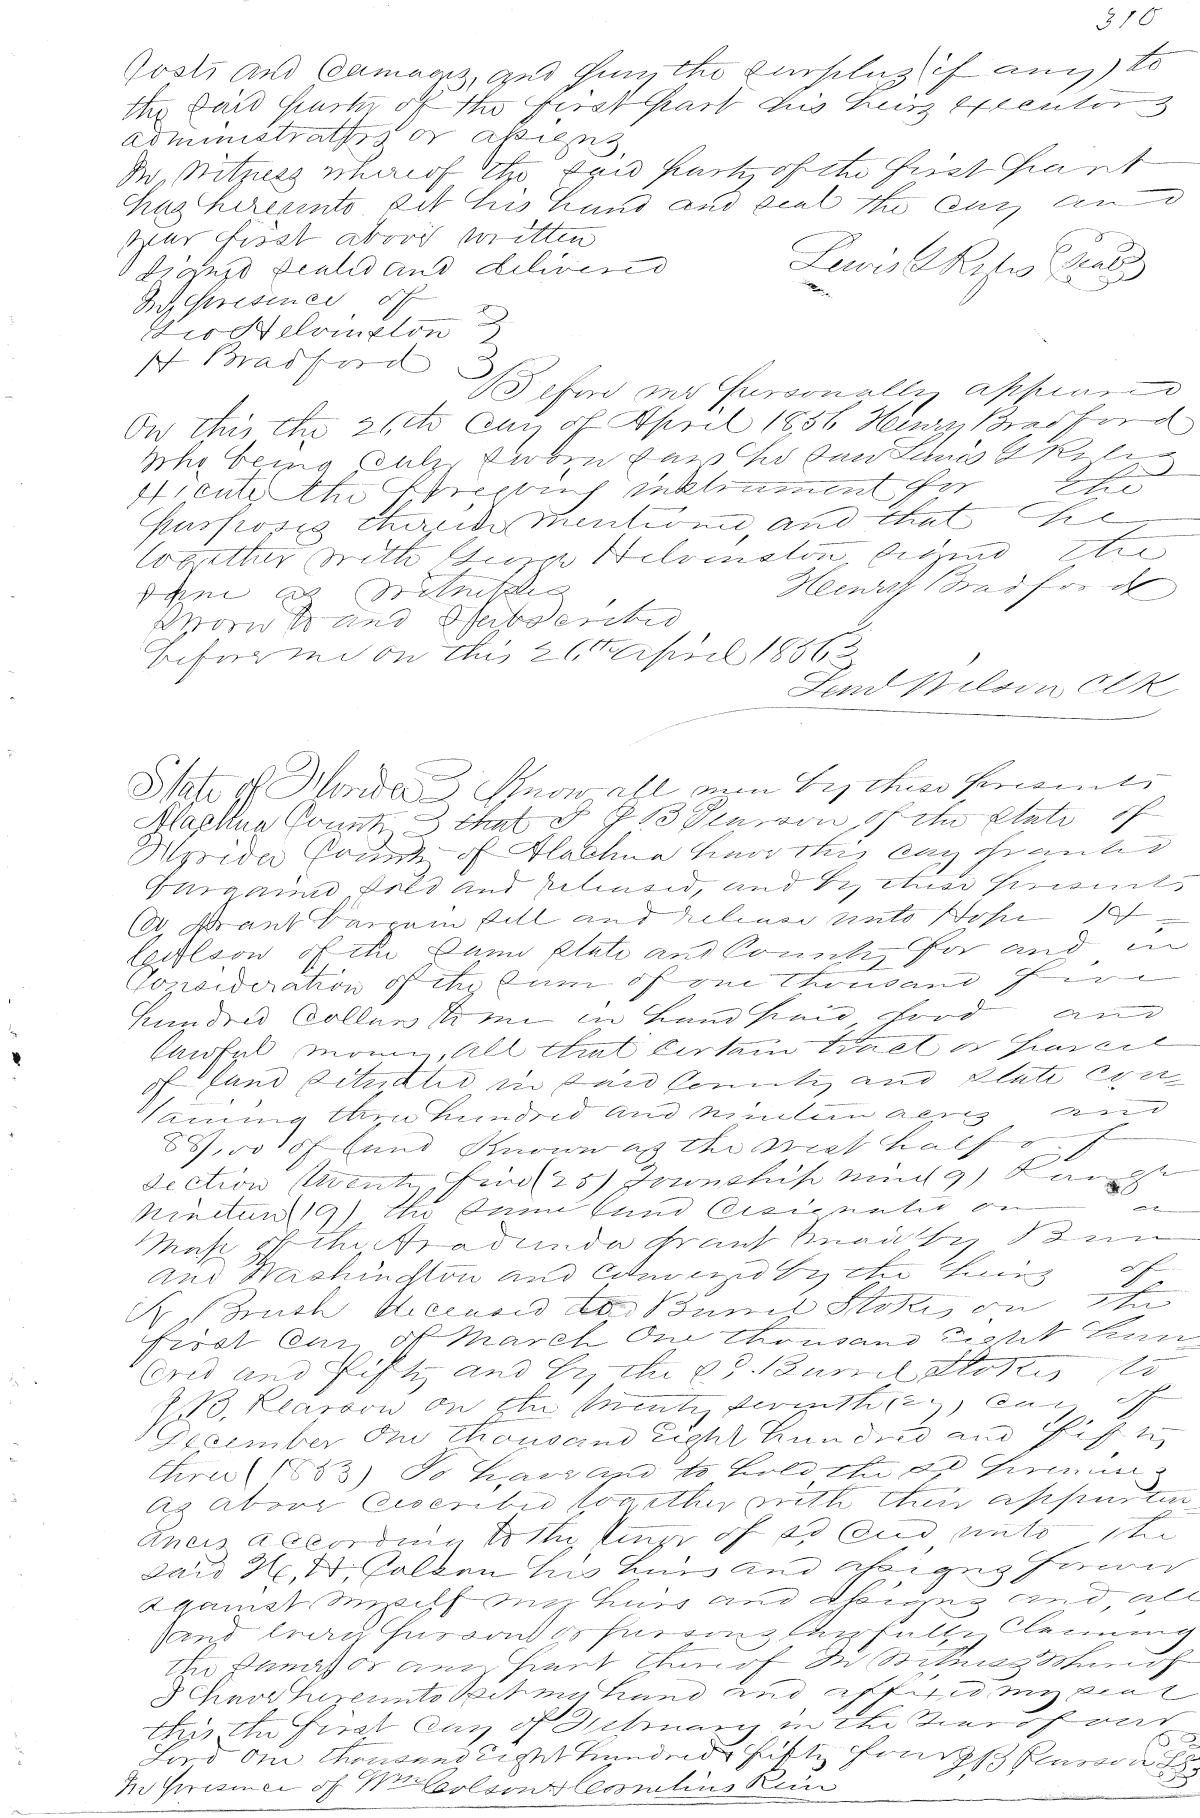 310
Costs and damages, and pay the surplus (if any) to
the said party of the first part his heirs executors
administrators or assigns
In Witness whereof the said party of the first part
has hereunto set his hand and seal the day and
year first above written
Signed sealed and delivered Lewis G Ryles (Seal)
In presence of
Geo Helvinston
H Bradford
Before me personally appeared
On this the 26th day of April 1856 Henry Bradford
Who being duly sworn says he saw Lewis G Ryles
execute the foregoing instrument for the
purposes therein mentioned, and that he
together with George Helvinston signed the
same as witnesses Henry Bradford
Sworn to and Subscribed
before me on this 26th April 1856
Wilson Clk
State of Florida Know all men by these presents
Alachua County that I J B Pearson of the state of
Florida County of Alachua have this day granted
bargained, sold and released, and by these presents
do grant bargain sell and release unto Hope H
Colson of the same state and County for and in
Consideration of the sum of one thousand five
hundred dollars to me in hand paid, good and
lawful money, all that certain tract or parcel
of land situated in said County and state con-
taining three hundred and nineteen acres and
88/100 of land Known as the west half of
section twenty five (25) Township nine (9) Range
nineteen (19) the same land designated on a
Map of the Arredondo grant made by Burr
and Washington and conveyed by the heirs of
Brush deceased to Burrel Stokes on the
first day of March One thousand eight hun-
dred and fifty and by the sd. Burrel Stokes to
J. B. Pearson on the twenty seventh (27) day of
December One thousand Eight hundred and fifty
three (1853) To have and to hold the sd premises
as above described together with their appurten-
ances according to the tenor of sd deed unto the
said H. H. Colson his heirs and assigns forever
against myself my heirs and assigns and, all
and every person or persons lawfully Claiming
the same or any part thereof In Witness Whereof
I have hereunto set my hand and affixed my seal
this the first day of February in the Year of our
Lord One thousand Eight hundred & fifty four J. B Pearson LS
In presence of Wm Colson & Cornelius Rain